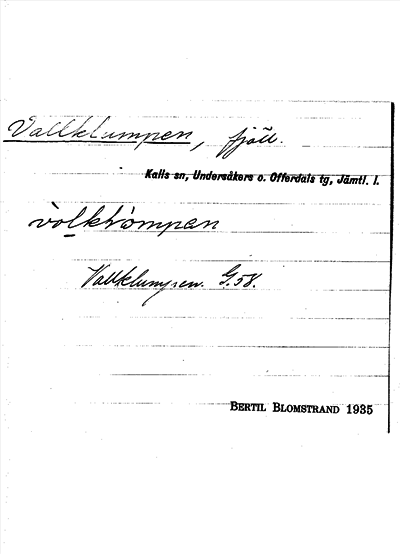 Vallklumpen, fjäll.
Kalls sn, Undersåkers o. Offerdals tg, Jämtl. l.
Vallklumpen. G.58.
BERTIL BLOMSTRAND 1935